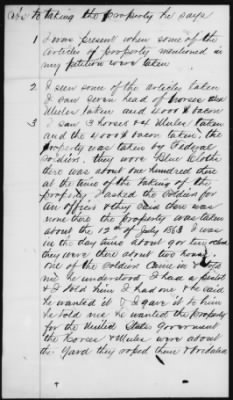 As to taking the property he says
1 I was present when some of the
articles of property mentioned in
my petition were taken
2 I seen some of the articles taken
I saw seven head of horses
Mules taken and wood & bacon
3. I saw 3 horses & 4 Mules taken
and the wood & bacon taken, the
property was taken by Federal
soldiers, they wore Blue Clothes
there was about one hundred there
at the time of the taking of the
property I asked the soldiers for
an officer & they said there was
none there the property was taken
about the 12th of July 1863 I was
in the day time about 9 or ten oclock
they were there about two hours
one of the soldiers came in & told
me he understood I had a pistol
& I told him I had one & he said
he wanted it & I gave it to him
he told me he wanted the property
for the United States Government
the horses & Mules were about
the Yard they roped them & bridled